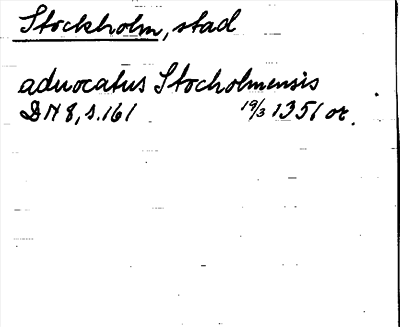 Stockholm, stad
aduocatus Stocholmensis
DN 8, s. 161 19/3 1351 or.